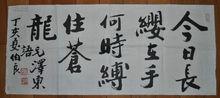 今日長
纓在手
何時縛
住蒼
龍
毛澤東
丁亥夏伯良